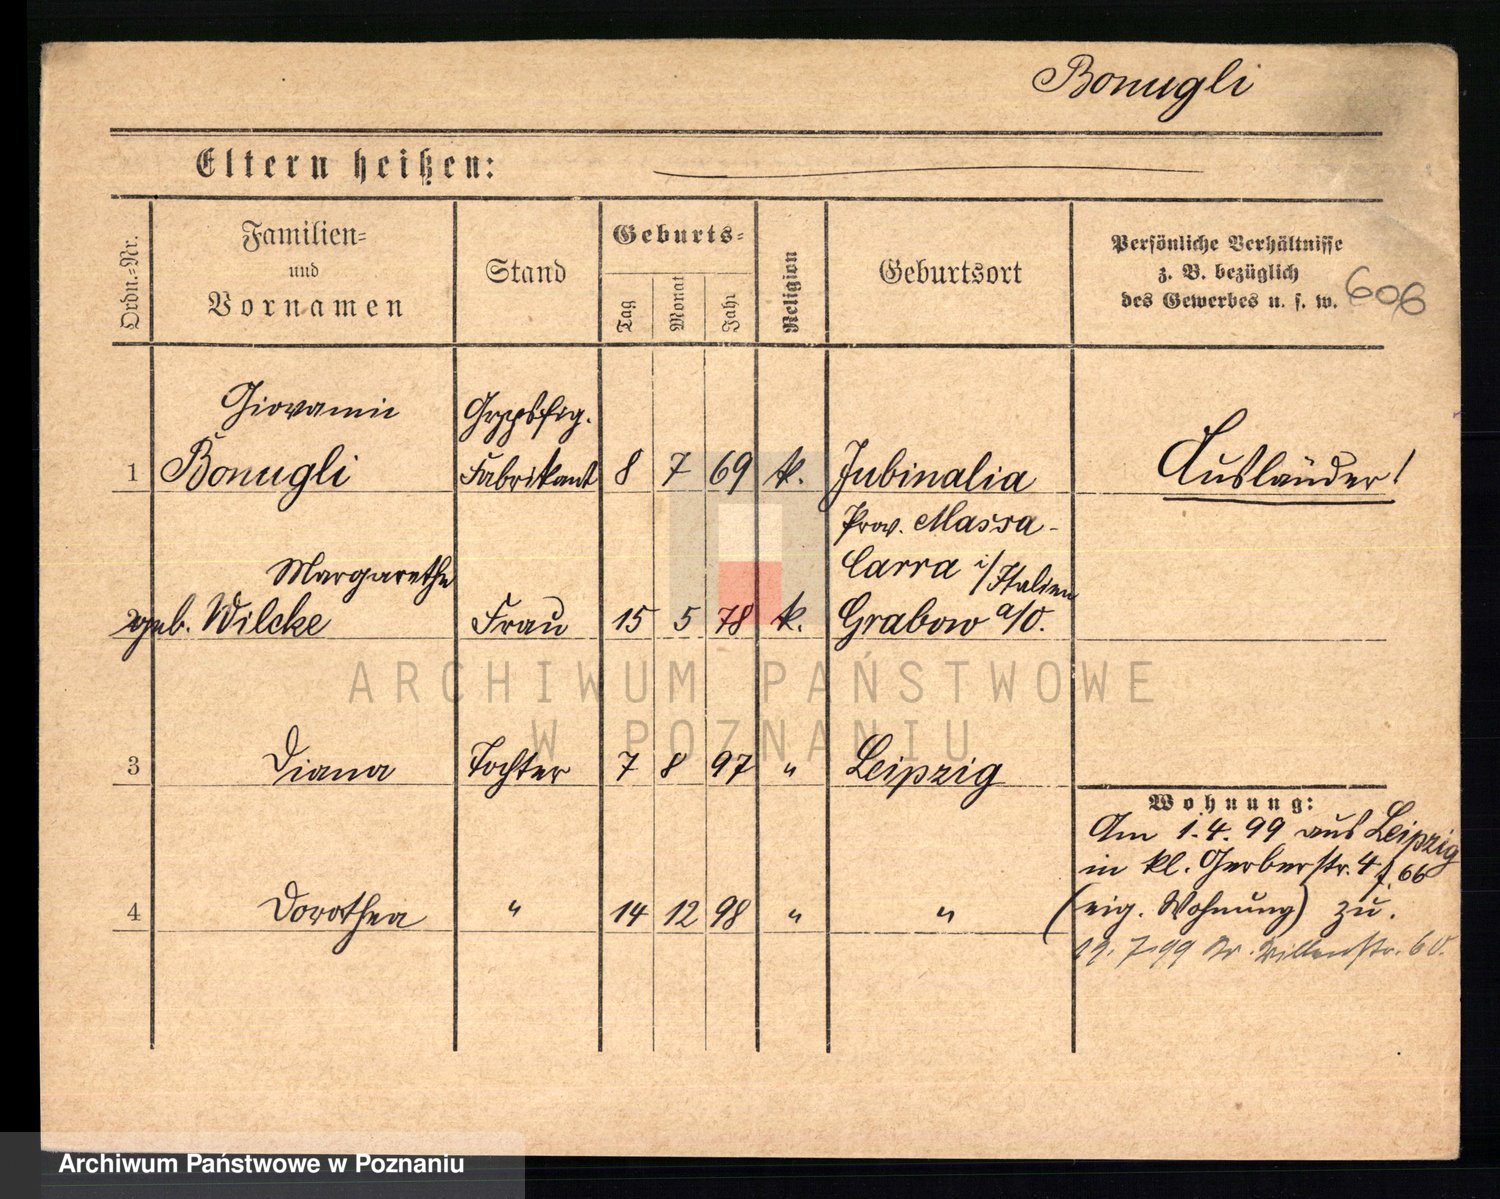 Bonugli
Eltern heißen:
Ordn.-Nr.
Familien-
und
Vornamen
Stand
Geburts-
Tag
Monat
Jahr
Religion
Geburtsort
Persönliche Verhältnisse
z. B. bezüglich
des Gewerbes u. s. w.
606
Giovanni Gypsfig.
1 Bonugli Fabrikant 8 7 69 k. Jubinalia Ausländer!
Prov. Massa-
Margarethe Carra i/Italien
2 geb. Wilcke Frau 15 5 78 k. Grabow a/O.
3 Diana Tochter 7 8 97 " Leipzig
Wohnung:
Am 1.4.99 aus Leipzig
in kl. Gerberstr. 4 f. 66
4 Dorothea " 14 12 98 " " (eig. Wohnung) zu.
7 99 60.
ARCHIWUM PAŃSTWOWE
W POZNANIU
Archiwum Państwowe w Poznaniu